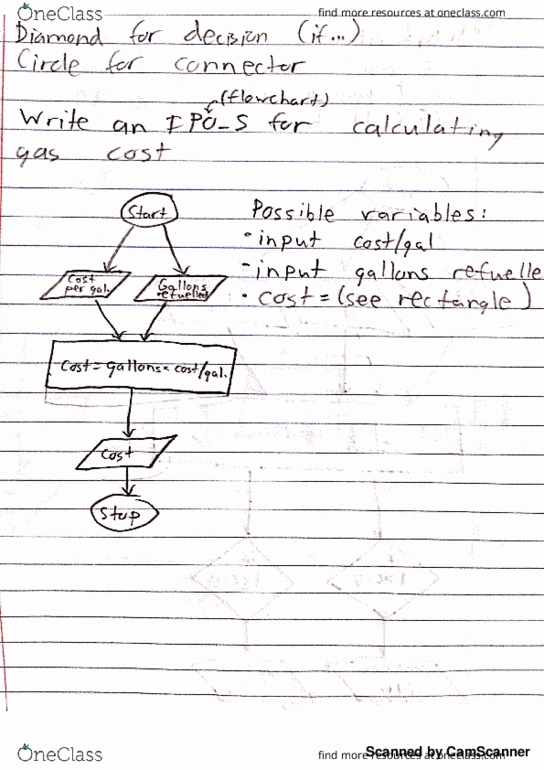 OneClass
find more resources at oneclass.com
Diamond for decision (if...)
Circle for connector
(flowchart)
Write an IPO-S for calculating
gas cost
Start
Possible variables:
• input cost/gal
• input gallons refuelle
• cost = (see rectangle)
Cost per gal.
Gallons refuelled
Cost = gallons × cost/gal.
Cost
Stop
OneClass
find more resources at oneclass.com
Scanned by CamScanner